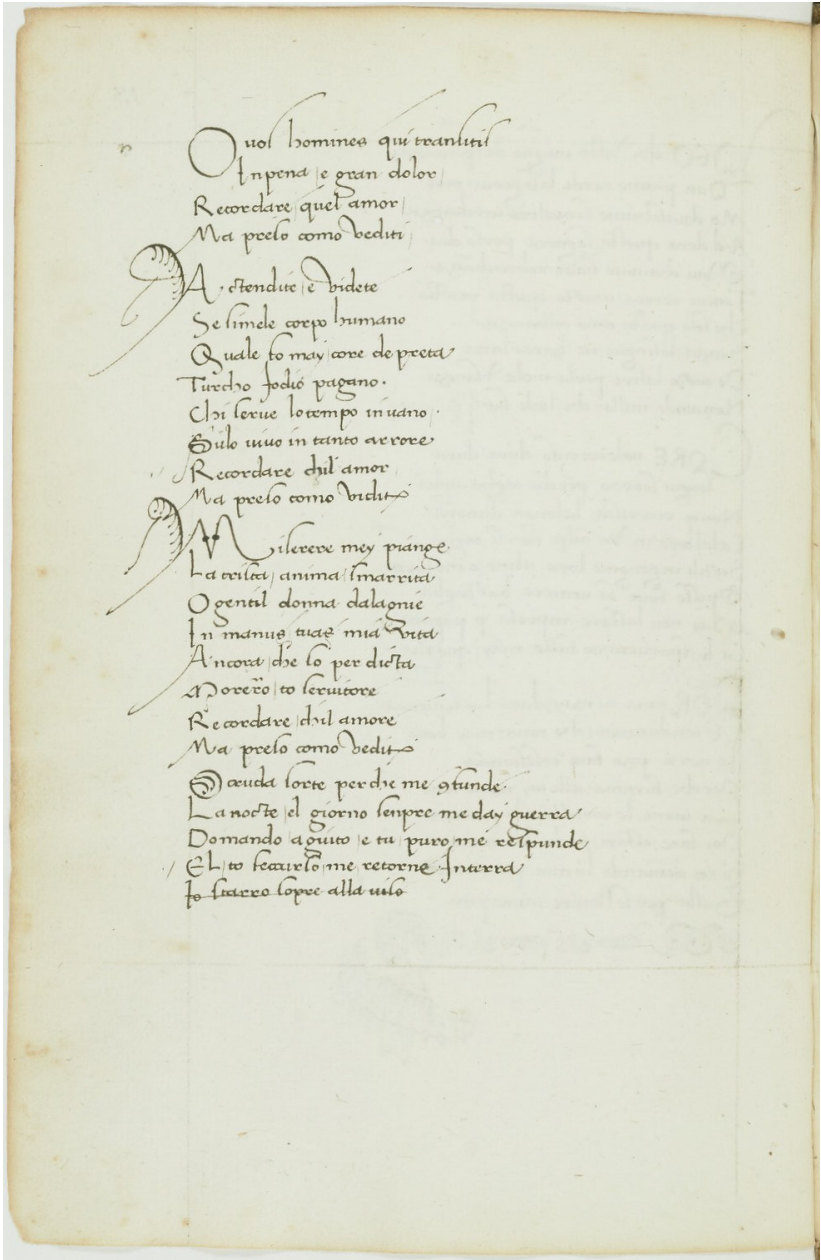 O vos homines qui transitis
In pena / e gran dolor /
Recordare / quel amor /
Ma preso como vediti /
Actendite / e videte
Se simele corpo humano
Quale fo may / core de preta
Turcho Jodio pagano.
Chi serve lo tempo in vano.
Sulo vivo in tanto arrore
Recordare chil amor
Ma preso como viditi
Miserere mey piange
La trista / anima / smarrita
O gentil donna dalagnie
In manus / tuas mia vita
Ancora / che so per dicta
Morerro / to servitore
Recordare / chil amore
Ma preso como vediti
O cruda sorte perche me 9funde.
La nocte / el giorno senpre me day guerra
Domando / aguito / e tu / puro / me respunde
El / to seccurso / me / retorne Interra
Io starro sopre alla viso